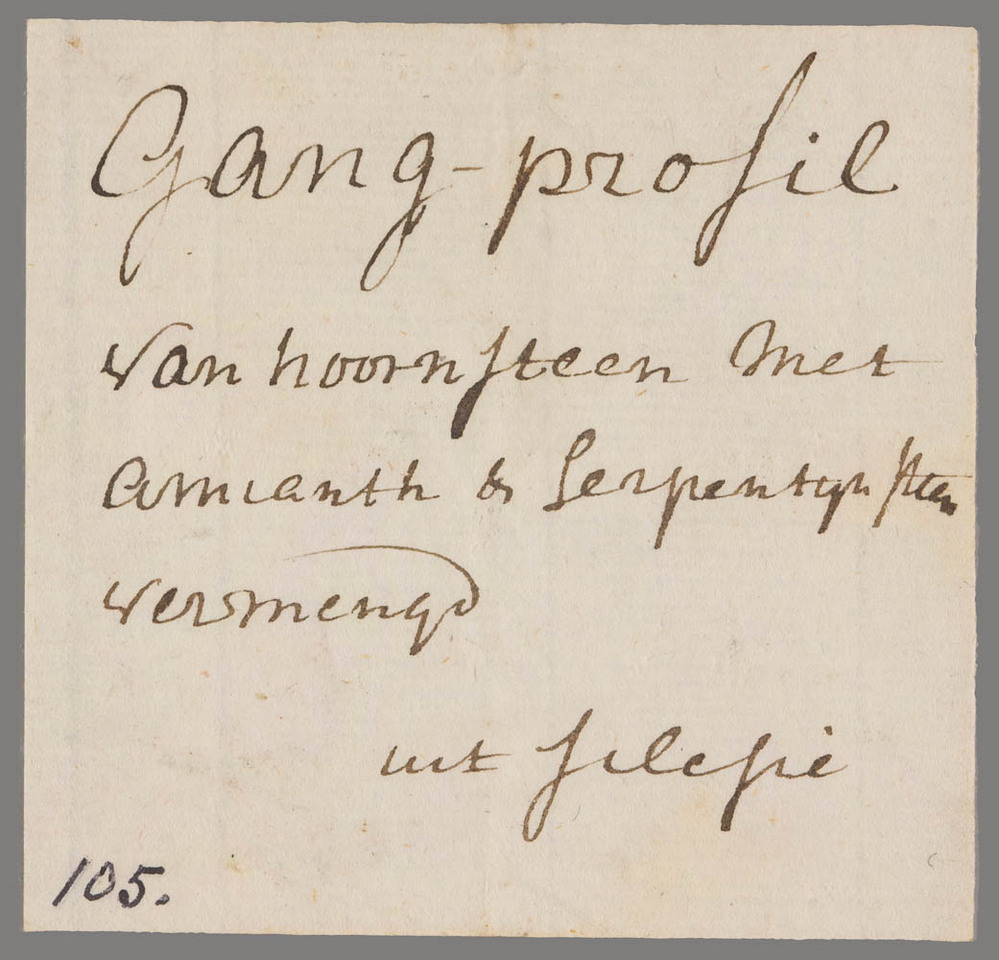 Gang-profil
van hoornsteen met
amianth & Serpentynsteen
vermengd
uit silesie
105.